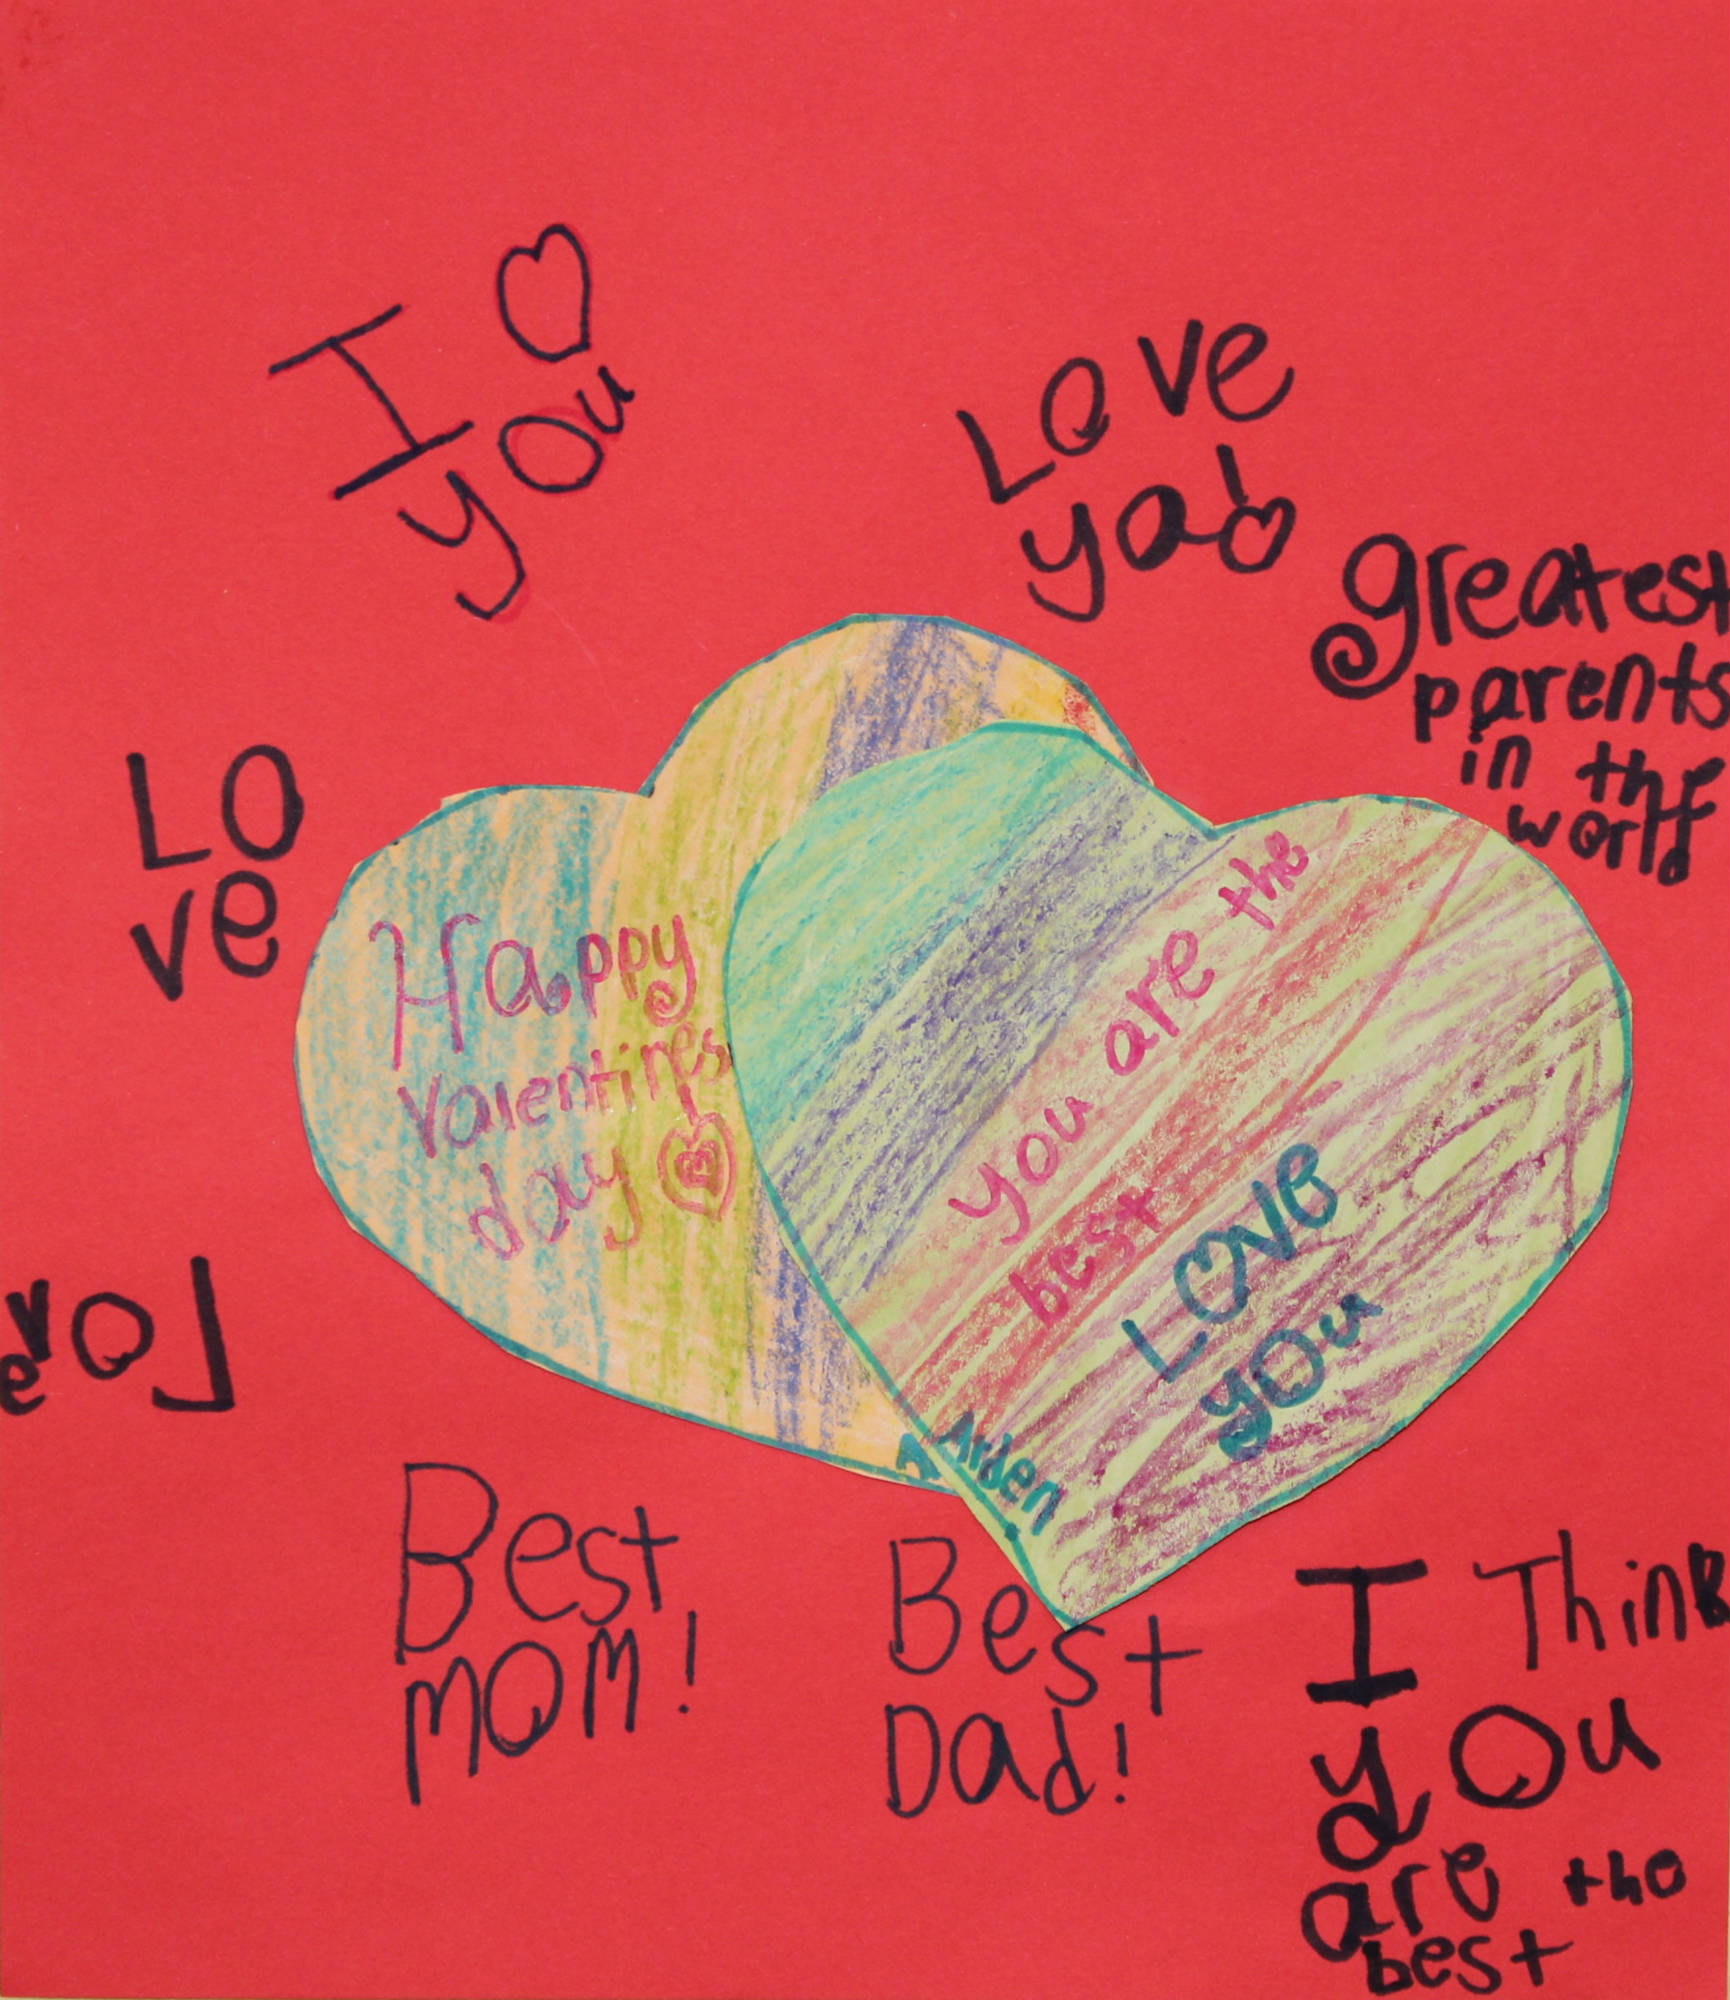 I ♡
you
Love
ya!♡
greatest
parents
in the
world
LO
ve
Happy
valentines
day
you are the
best
LOVE
you
Arden
Love
Best
mom!
Best
Dad!
I Think
you
are the
best